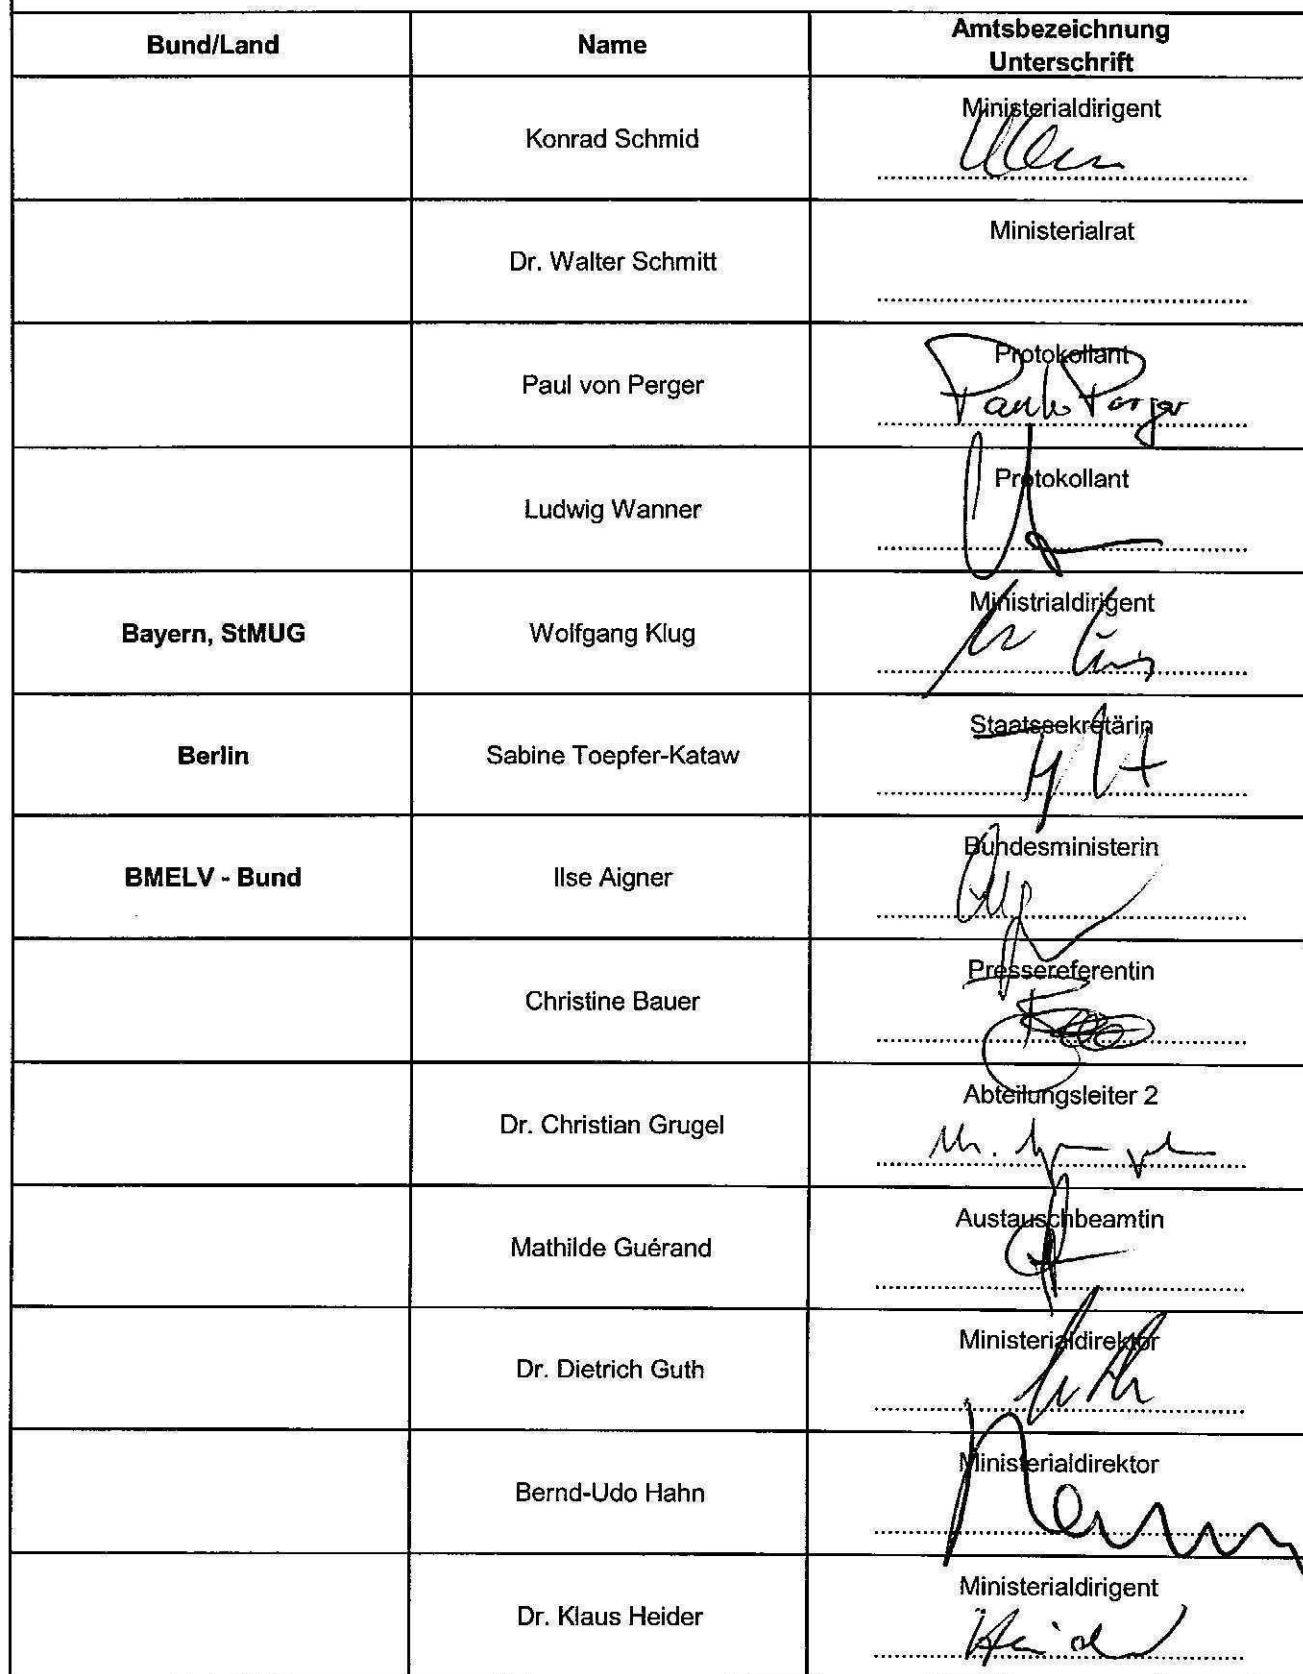 Bund/Land Name Amtsbezeichnung
Unterschrift
Konrad Schmid Ministerialdirigent
Dr. Walter Schmitt Ministerialrat
Paul von Perger Protokollant
Ludwig Wanner Protokollant
Bayern, StMUG Wolfgang Klug Ministrialdirigent
Berlin Sabine Toepfer-Kataw Staatssekretärin
BMELV - Bund Ilse Aigner Bundesministerin
Christine Bauer Pressereferentin
Dr. Christian Grugel Abteilungsleiter 2
Mathilde Guérand Austauschbeamtin
Dr. Dietrich Guth Ministerialdirektor
Bernd-Udo Hahn Ministerialdirektor
Dr. Klaus Heider Ministerialdirigent